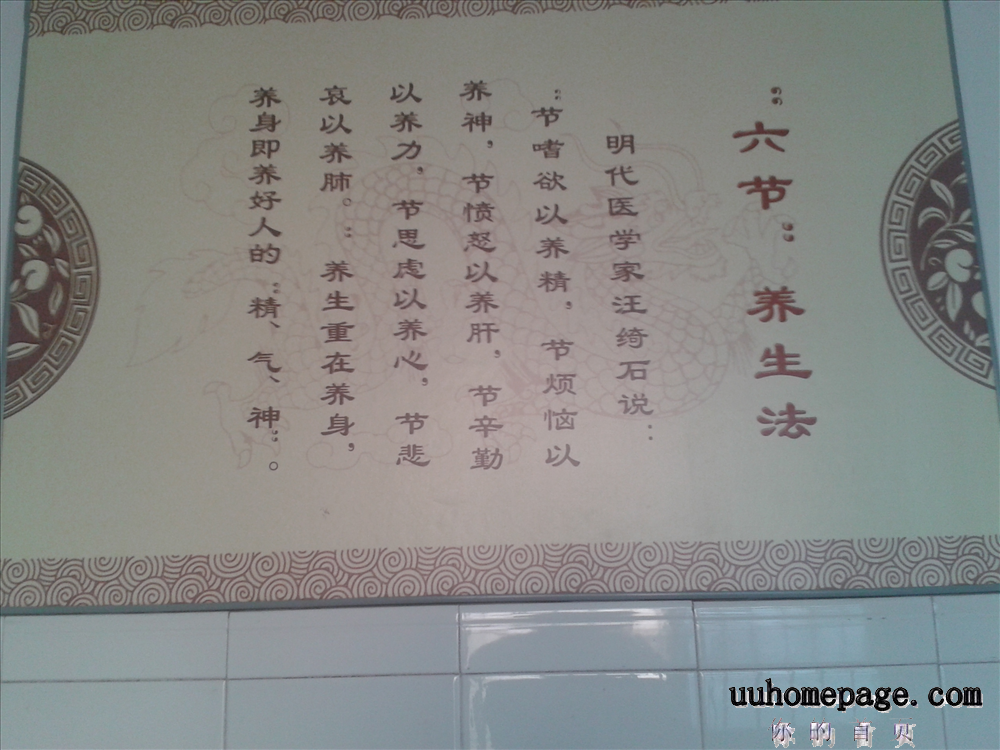 “六节”养生法
明代医学家汪绮石说：
“节嗜欲以养精，节烦恼以
养神，节愤怒以养肝，节辛勤
以养力，节思虑以养心，节悲
哀以养肺。”养生重在养身，
养身即养好人的“精、气、神”。
uuhomepage.com
你的首页